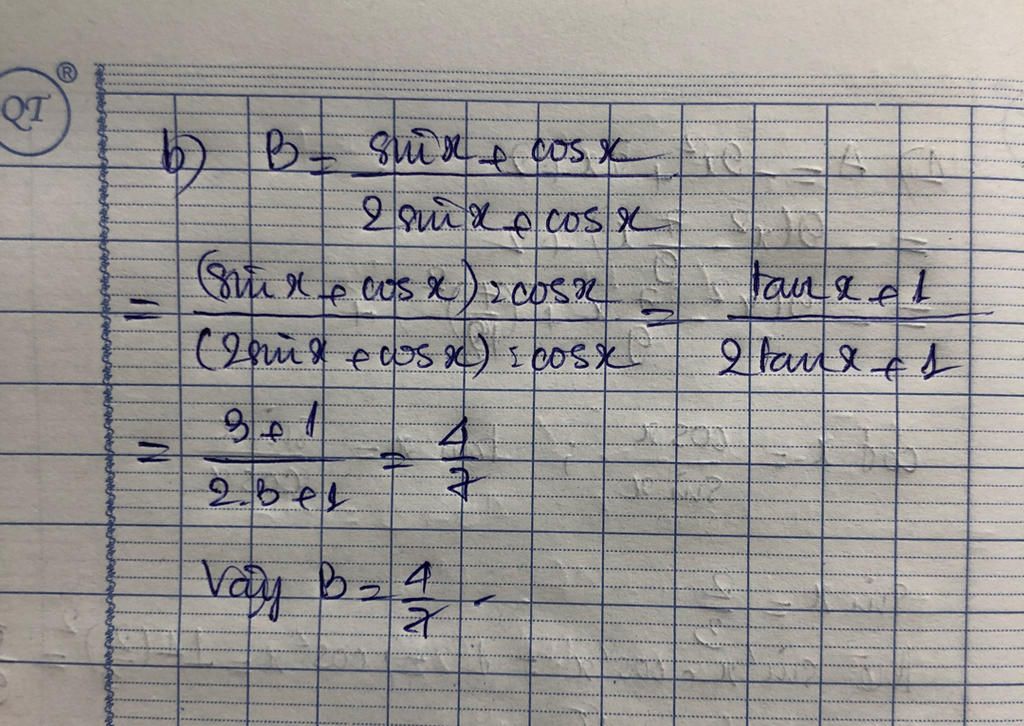 QT ®
b) B = sin x + cos x / 2 sin x + cos x
= (sin x + cos x) : cos x / (2 sin x + cos x) : cos x = tan x + 1 / 2 tan x + 1
= 3 + 1 / 2.3 + 1 = 4 / 7
Vậy B = 4 / 7 .